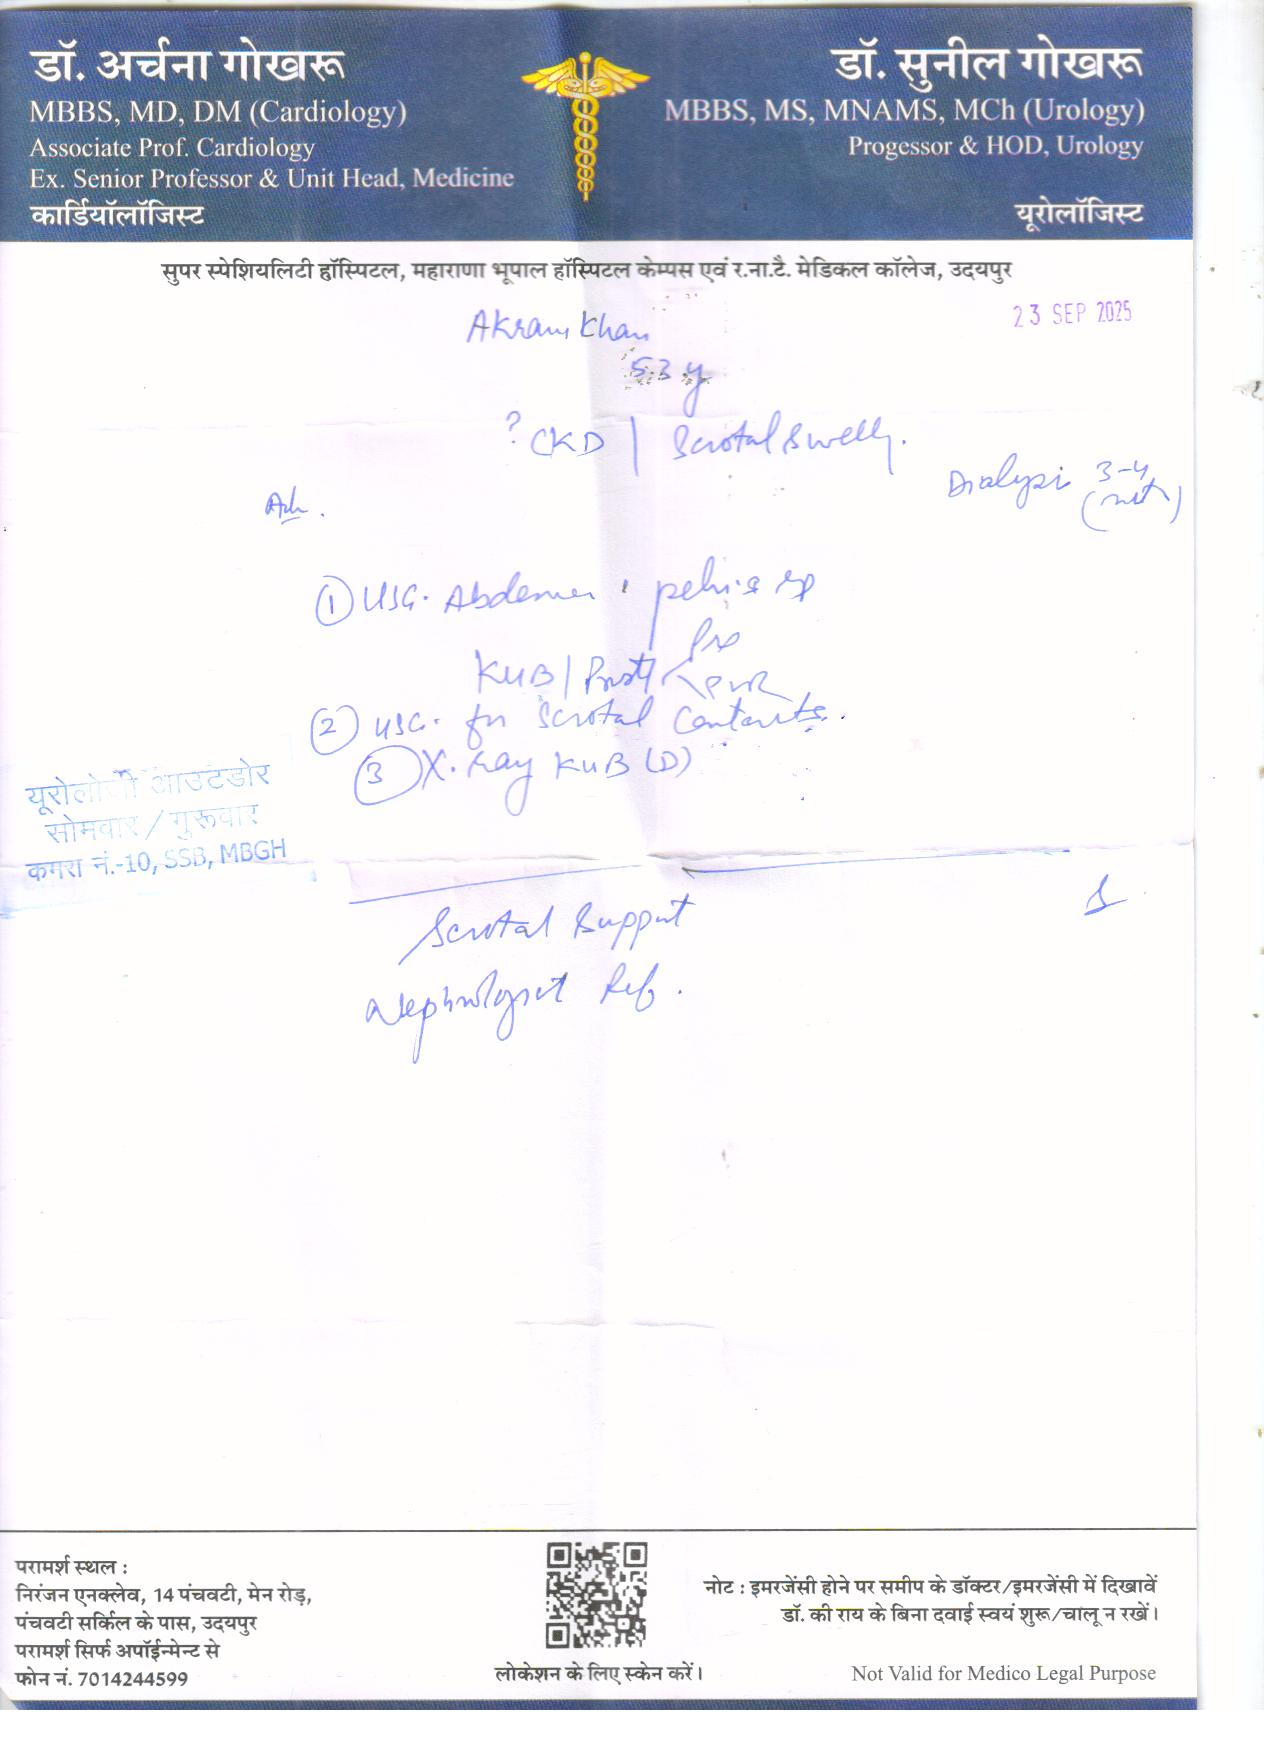 डॉ. अर्चना गोखरू
MBBS, MD, DM (Cardiology)
Associate Prof. Cardiology
Ex. Senior Professor & Unit Head, Medicine
कार्डियॉलॉजिस्ट
डॉ. सुनील गोखरू
MBBS, MS, MNAMS, MCh (Urology)
Progessor & HOD, Urology
यूरोलॉजिस्ट
सुपर स्पेशियलिटी हॉस्पिटल, महाराणा भूपाल हॉस्पिटल केम्पस एवं र.ना.टै. मेडिकल कॉलेज, उदयपुर
23 SEP 2025
Akram Khan
53 y
? CKD | Scrotal Swelly.
Dialysi 3-4
Adv.
① USG. Abdomen pelvis
KUB / Prost
PVR
② USG. for Scrotal Contents.
③ X.ray KUB (D)
यूरोलोजी आउटडोर
सोमवार / गुरूवार
कमरा नं.-10, SSB, MBGH
Scrotal Support
Nephrologist Ref.
परामर्श स्थल :
निरंजन एनक्लेव, 14 पंचवटी, मेन रोड़,
पंचवटी सर्किल के पास, उदयपुर
परामर्श सिर्फ अपॉईन्मेन्ट से
फोन नं. 7014244599
लोकेशन के लिए स्केन करें।
नोट : इमरजेंसी होने पर समीप के डॉक्टर/इमरजेंसी में दिखावें
डॉ. की राय के बिना दवाई स्वयं शुरू/चालू न रखें।
Not Valid for Medico Legal Purpose